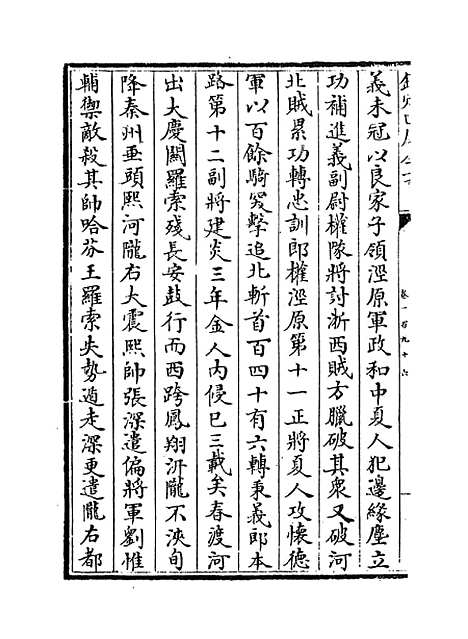 欽定四庫全書
卷一百九十六
義未冠以良家子領涇原軍政和中夏人犯邊緣塵立
功補進義副尉權隊將討浙西賊方臘破其衆又破河
北賊累功轉忠訓郎權涇原第十一正將夏人攻懷德
軍以百餘騎突擊追北斬首百四十有六轉秉義郎本
路第十二副將建炎三年金人内侵已三載矣春渡河
出大慶關羅索殘長安鼓行而西跨鳳翔汧隴不浹旬
降秦州垂頭熙河隴右大震熙帥張深遣偏將軍劉惟
輔禦敵殺其帥哈芬王羅索失勢遁走深更遣隴右都